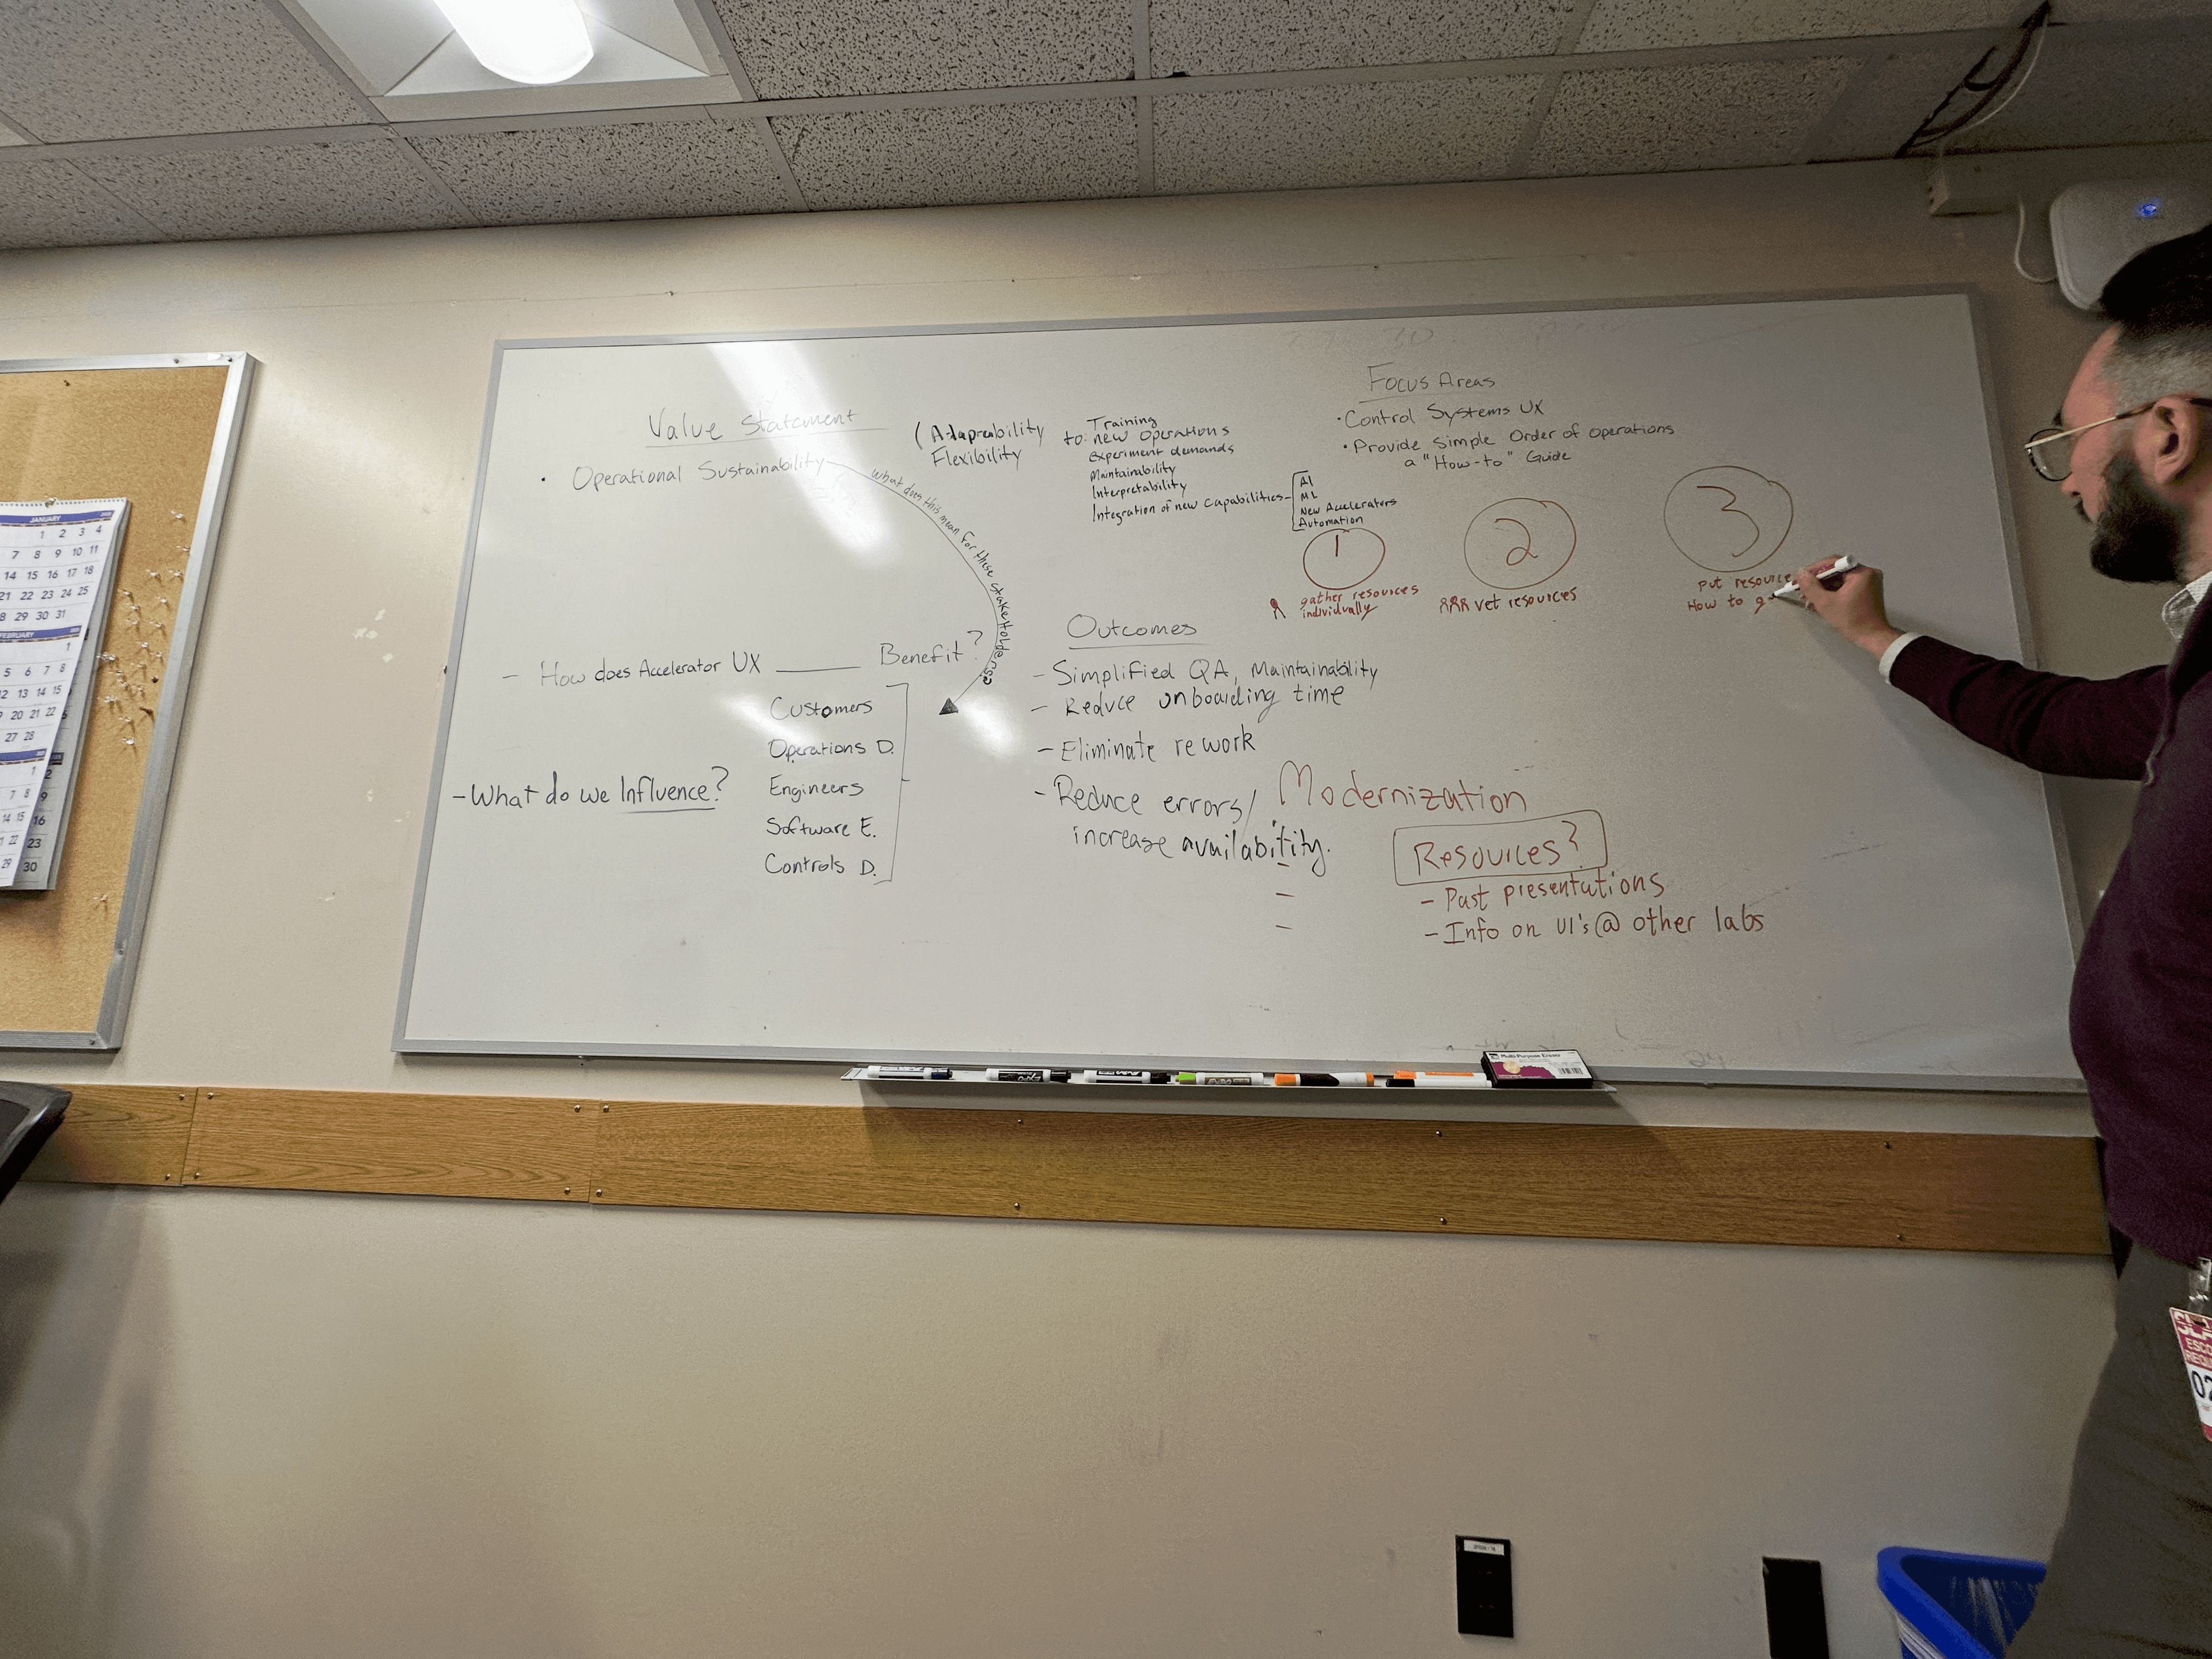 Value Statement
• Operational Sustainability
What does this mean for these stakeholders?
(Adapreability
Flexibility
to:
Training
new operations
Experiment demands
Maintainability
Interpretability
Integration of new capabilities
AI
ML
New Accelerators
Automation
Focus Areas
• Control Systems UX
• Provide Simple Order of Operations
a "How-to" Guide
1
gather resources
individually
2
vet resources
3
put resource
How to g
- How does Accelerator UX ______ Benefit?
Customers
Operations D.
Engineers
Software E.
Controls D.
- What do we Influence?
Outcomes
- Simplified QA, Maintainability
- Reduce onboarding time
- Eliminate rework
- Reduce errors/
increase availability.
Modernization
-
-
-
Resources?
- Past presentations
- Info on UI's @ other labs
JANUARY
1 2 3 4
7 8 9 10 11
14 15 16 17 18
21 22 23 24 25
28 29 30 31
FEBRUARY
1
5 6 7 8
12 13 14 15
19 20 21 22
27 28
1
7 8
14 15
22
29
2
9
16
23
30
Multi-Purpose Eraser
ESCO
REQU
02